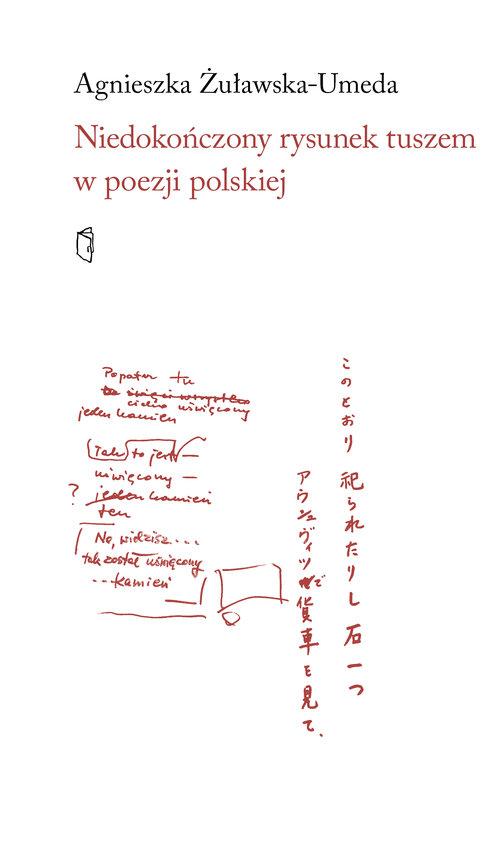 Agnieszka Żuławska-Umeda
Niedokończony rysunek tuszem
w poezji polskiej
Popatrz tu
cicho uświęcony
jeden kamień
Tak to jest —
uświęcony —
? jeden kamień
ten
No, widzisz...
tak został uświęcony
...kamień
このとおり 祀られたりし 石一つ
アウシュヴィツで貨車を見て.